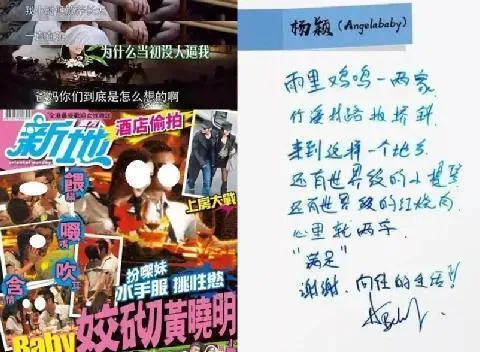 我小时候放弃钢琴
一直在想
为什么当初没人逼我
爸妈你们到底是怎么想的啊
新地
oriental sunday
酒店偷拍
上房大戰
餵嘴
啜
吹耳
含情
扮㗎妹
水手服 挑性慾
Baby 姣砌黃曉明
杨颖(Angelababy)
雨里鸡鸣一两家
竹溪村路板桥斜
来到这样一个地方
还有世界级的小提琴
还有世界级的红烧肉
心里就两字
"满足"
谢谢 向往的生活!!